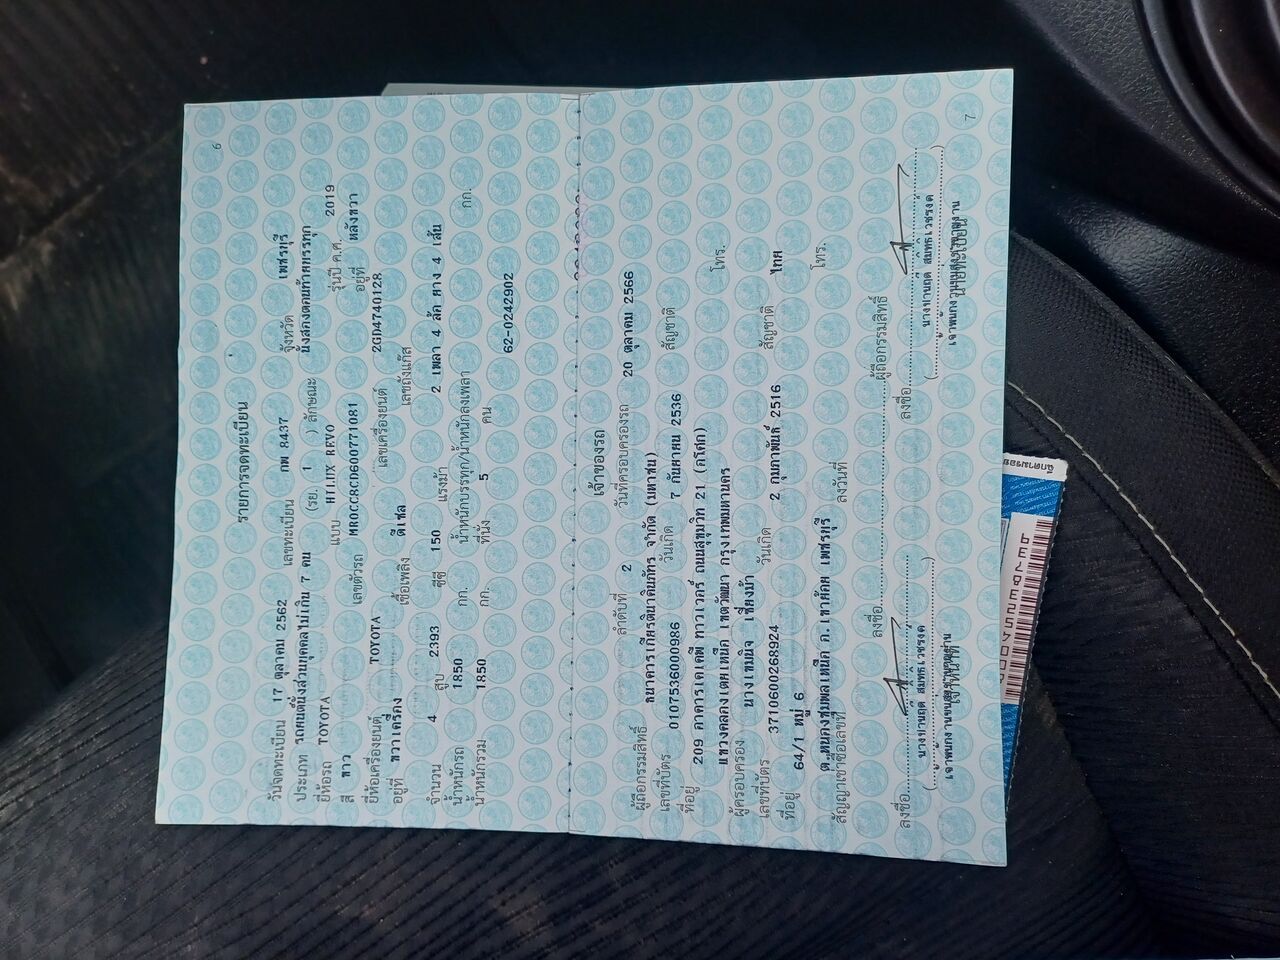 6
รายการจดทะเบียน
วันจดทะเบียน 17 ตุลาคม 2562 เลขทะเบียน กพ 8437 จังหวัด เพชรบุรี
ประเภท รถยนต์นั่งส่วนบุคคลไม่เกิน 7 คน (รย. 1 ) ลักษณะ นั่งสองตอนท้ายบรรทุก
ยี่ห้อรถ TOYOTA แบบ HILUX REVO รุ่นปี ค.ศ. 2019
สี ขาว เลขตัวรถ MR0CCBCD600771081 อยู่ที่ หลังขวา
ยี่ห้อเครื่องยนต์ TOYOTA เลขเครื่องยนต์ 2GD4740128
อยู่ที่ ขวาเครื่อง เชื้อเพลิง ดีเซล เลขถังแก๊ส
จำนวน 4 สูบ 2393 ซีซี 150 แรงม้า 2 เพลา 4 ล้อ ยาง 4 เส้น
น้ำหนักรถ 1850 กก. น้ำหนักบรรทุก/น้ำหนักลงเพลา กก.
น้ำหนักรวม 1850 กก. ที่นั่ง 5 คน 62-0242902
เจ้าของรถ
ลำดับที่ 2 วันที่ครอบครองรถ 20 ตุลาคม 2566
ผู้ถือกรรมสิทธิ์ ธนาคารเกียรตินาคินภัทร จำกัด (มหาชน)
เลขที่บัตร 0107536000986 วันเกิด 7 กันยายน 2536 สัญชาติ
ที่อยู่ 209 อาคารเคเคพี ทาวเวอร์ ถนนสุขุมวิท 21 (อโศก)
แขวงคลองเตยเหนือ เขตวัฒนา กรุงเทพมหานคร โทร.
ผู้ครอบครอง นางเขมนิจ เชี่ยงม้า
เลขที่บัตร 3710600268924 วันเกิด 2 กุมภาพันธ์ 2516 สัญชาติ ไทย
ที่อยู่ 64/1 หมู่ 6
ต.หนองชุมพลเหนือ อ.เขาย้อย เพชรบุรี โทร.
สัญญาเช่าซื้อเลขที่ ลงวันที่
ลงชื่อ ผู้ถือกรรมสิทธิ์
ลงชื่อ ลงชื่อ
เจ้าหน้าที่ นายทะเบียน
7